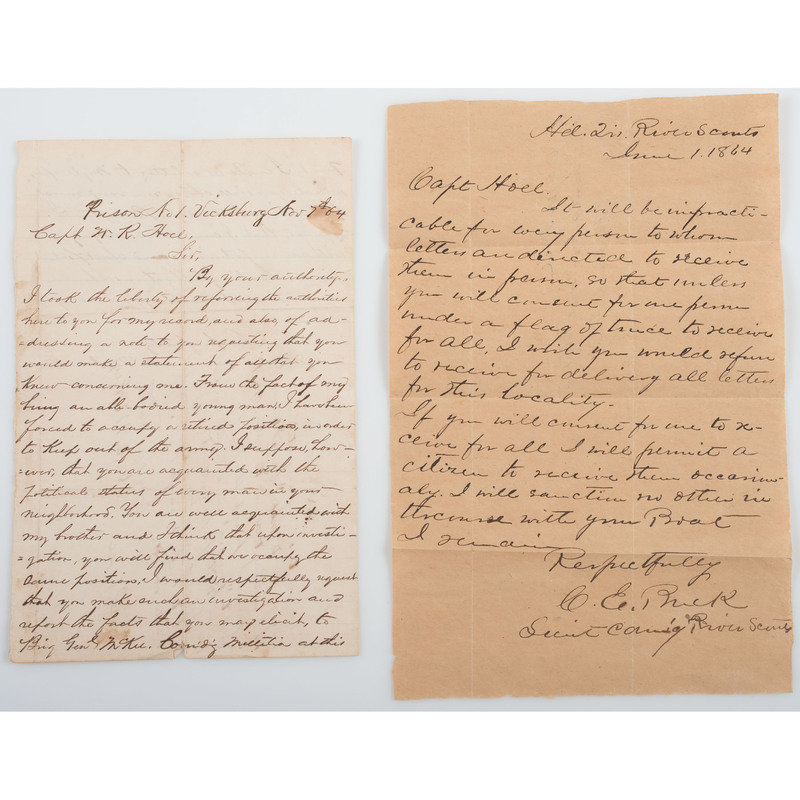 Prison No 1. Vicksburg Nov 7th 64
Capt W. R. Hoel,
Sir,
By your authority,
I took the liberty of referring the authorities
here to you for my record, and also, of ad-
-dressing a note to you requesting that you
would make a statement of all that you
knew concerning me. From the fact of my
being an able bodied young man, I have been
forced to occupy a retired position, in order
to keep out of the army. I suppose, how-
-ever, that you are acquainted with the
political status of every man in your
neighborhood. You are well acquainted with
my brother and I think that upon investi-
-gation, you will find that we occupy the
same position, I would respectfully request
that you make such an investigation and
report the facts that you may elicit, to
Brig Genl McKee. Comd'g Militia at this
Hd. Qrs. River Scouts
June 1. 1864
Capt Hoel.
It will be impracti-
cable for every person to whom
letters are directed to receive
them in person, so that unless
you will consent for one person
under a flag of truce to receive
for all, I wish you would refuse
to receive for delivery all letters
for this locality.
If you will consent for one to re-
ceive for all I will permit a
citizen to receive them occasion-
aly. I will sanction no other in
tercourse with your Boat
I remain
Respectfully
C. E. Buck
Lieut Comd'g River Scouts